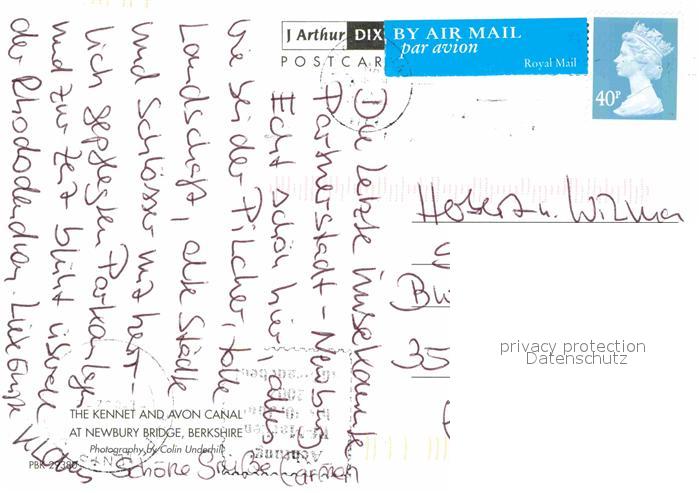 J Arthur DIX
POSTCAR
BY AIR MAIL
par avion
Royal Mail
40P
Die letzte
Partnerstadt - Newbury
Echt schön hier, alles
wie bei der Pilcher, tolle
Landschaft, alte Städte
und Schlösser mit herr-
lich gepflegten Parkanlagen
und zur Zeit blüht überall
der Rhododendron. Liebe Grüße Klaus
Schöne Grüße Carmen
Herbert u. Wilma
35
privacy protection
Datenschutz
THE KENNET AND AVON CANAL
AT NEWBURY BRIDGE, BERKSHIRE
Photography by Colin Underhill